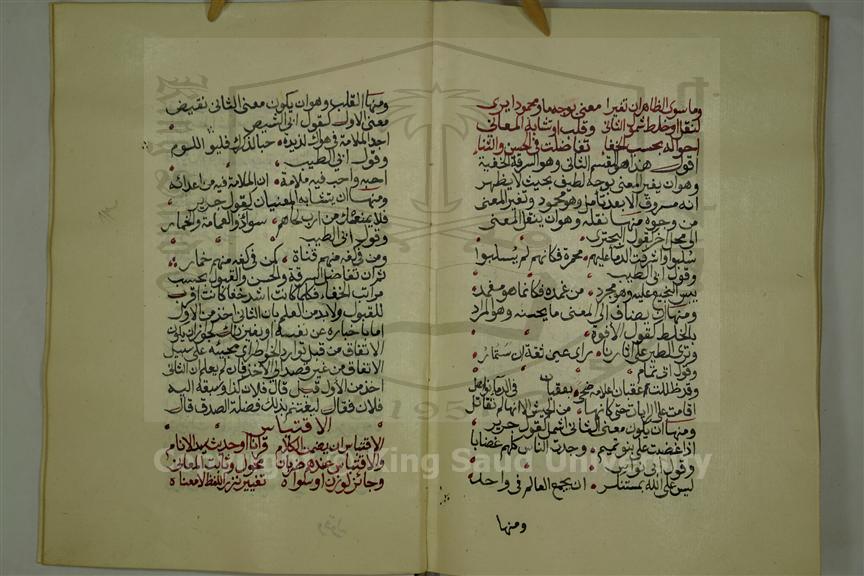 وما سوى الظاهر ان تغيرا معنى بوجه ما ومحمودا يرى
لنقل او خلط شمول الثاني وقلب او تشابه المعاني
احواله بحسب الخفاء تفاضلت في الحسن والثناء
اقول هذا هو القسم الثاني وهو السرقة الخفية
وهو ان يغير المعنى بوجه لطيف بحيث لا يظهر
انه مسروق الا بعد تأمل وهو محمود وتغير المعنى
من وجوه منها نقله وهو ان ينقل المعنى
الى محل اخر كقول البحتري
سلبوا واشرقت الدماء عليهم محمرة فكانهم لم يسلبوا
وقول ابي الطيب
يبس النجيع عليه وهو مجرد من غمده فكانما هو مغمد
ومنها ان يضاف الى المعنى ما يحسنه وهو المراد
بالخلط كقول الافوه
وترى الطير على اثارنا رأي عين ثقة ان ستمار
وقول ابي تمام
وقد ظللت عقبان اعلامه ضحى بعقبان في الدماء نواهل
اقامت على الرايات حتى كانها من الجيش الا انها لم تقاتل
ومنها ان يكون معنى الثاني اشمل كقول جرير
اذا غضبت على بنو تميم وجدت الناس كلهم غضابا
وقول ابي نواس
ليس على الله بمستنكر ان يجمع العالم في واحد
ومنها
ومنها القلب وهو ان يكون معنى الثاني نقيض
معنى الاول كقول ابي الشيص
اجد الملامة في هواك لذيذة حبا لذكرك فليلمني اللوم
وقول ابي الطيب
احبه واحب فيه ملامة ان الملامة فيه من اعدائه
ومنها ان يتشابه المعنيان كقول جرير
فلا يمنعك من ارب لحاهم سواء ذو العمامة والخمار
وقول ابي الطيب
ومن في كفه منهم قناة كمن في كفه منهم خمار
ثم ان تفاضل السرقة والحسن والقبول بحسب
مراتب الخفاء فكلما كانت اشد خفاء كانت اقرب
للقبول ولا بد من العلم بان الثاني اخذ من الاول
اما باخباره عن نفسه او بغير ذلك لجواز ان يكون
الاتفاق من قبل توارد الخواطر اي مجيئه على سبيل
الاتفاق من غير قصد الى الاخذ فان لم يعلم ان الثاني
اخذ من الاول قيل قال فلان كذا وسبقه اليه
فلان فقال ليغتنم بذلك فضلة الصدق قال
الاقتباس
الاقتباس ان يضمن الكلام قرانا او حديث سيد الانام
والاقتباس عندهم ضربان محول وثابت المعاني
وجائز لوزن او سواه تغيير نزر اللفظ لا معناه